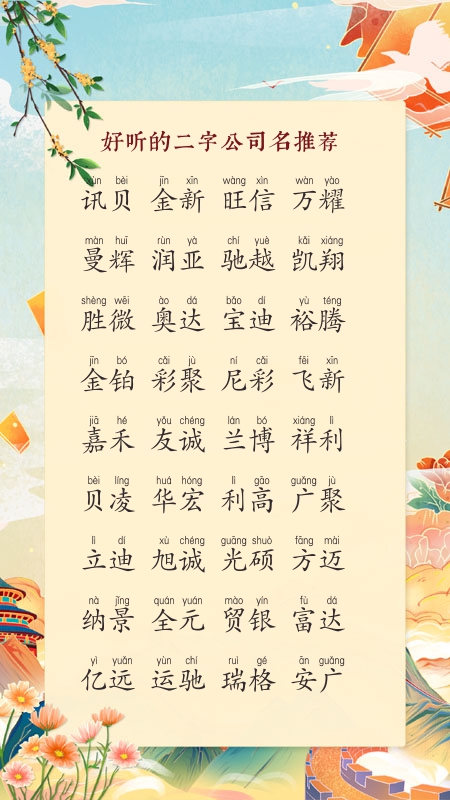 好听的二字公司名推荐
xùn bèi jīn xīn wàng xìn wàn yào
讯贝 金新 旺信 万耀
màn huī rùn yà chí yuè kǎi xiáng
曼辉 润亚 驰越 凯翔
shèng wēi ào dá bǎo dí yù téng
胜微 奥达 宝迪 裕腾
jīn bó cǎi jù ní cǎi fēi xīn
金铂 彩聚 尼彩 飞新
jiā hé yǒu chéng lán bó xiáng lì
嘉禾 友诚 兰博 祥利
bèi líng huá hóng lì gāo guǎng jù
贝凌 华宏 利高 广聚
lì dí xù chéng guāng shuò fāng mài
立迪 旭诚 光硕 方迈
nà jǐng quán yuán mào yín fù dá
纳景 全元 贸银 富达
yì yuǎn yùn chí ruì gé ān guǎng
亿远 运驰 瑞格 安广